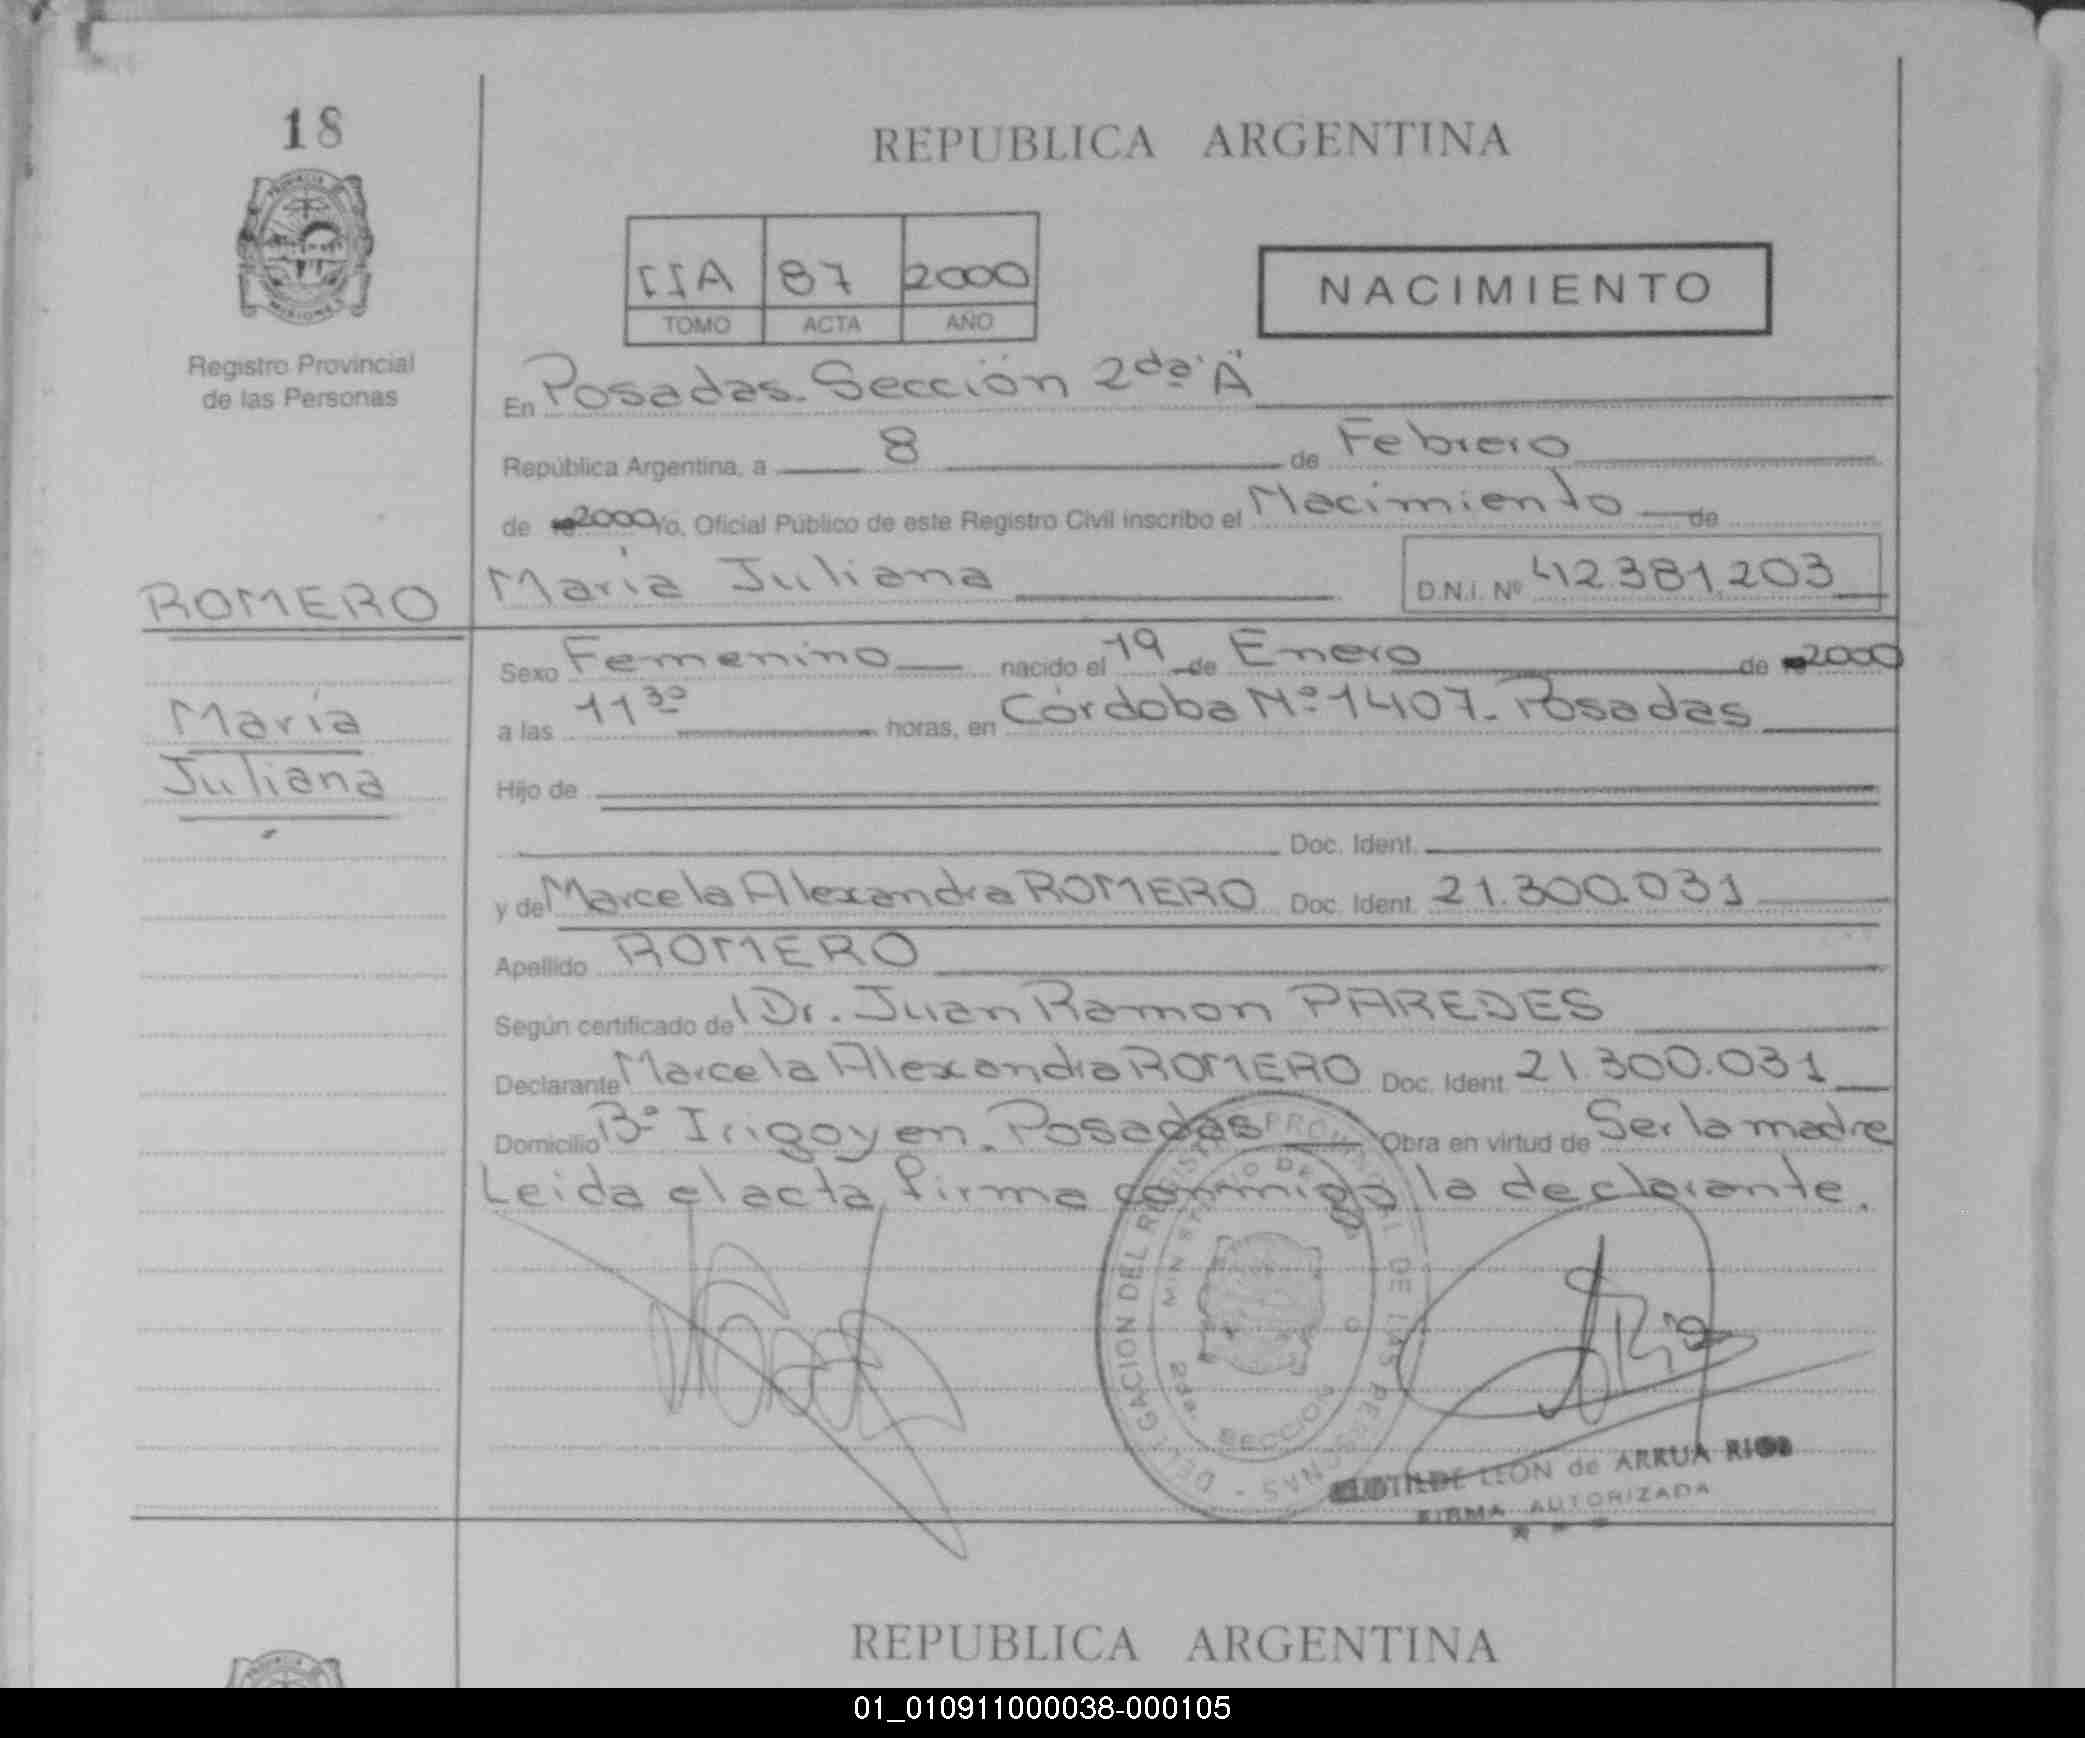 18
REPUBLICA ARGENTINA
IIA 87 2000
TOMO ACTA AÑO
NACIMIENTO
Registro Provincial
de las Personas
En Posadas. Sección 2da "A"
República Argentina, a 8 de Febrero
de 2000 Yo, Oficial Público de este Registro Civil inscribo el Nacimiento de
ROMERO
María Juliana D.N.I. Nº 42.381.203
María
Juliana
Sexo Femenino nacido el 19 de Enero de 2000
a las 11 30 horas, en Córdoba Nº 1407. Posadas
Hijo de
Doc. Ident.
y de Marcela Alexandra ROMERO Doc. Ident. 21.300.031
Apellido ROMERO
Según certificado de Dr. Juan Ramon PAREDES
Declarante Marcela Alexandra ROMERO Doc. Ident. 21.300.031
Domicilio Bº Irigoyen. Posadas Obra en virtud de Ser la madre
Leida el acta, firma conmigo la declarante.
DELEGACION DEL REGISTRO PROVINCIAL DE LAS PERSONAS -
MINISTERIO DE
SECCION
CLOTILDE LEON de ARRUA RIOS
FIRMA AUTORIZADA
REPUBLICA ARGENTINA
01_010911000038-000105